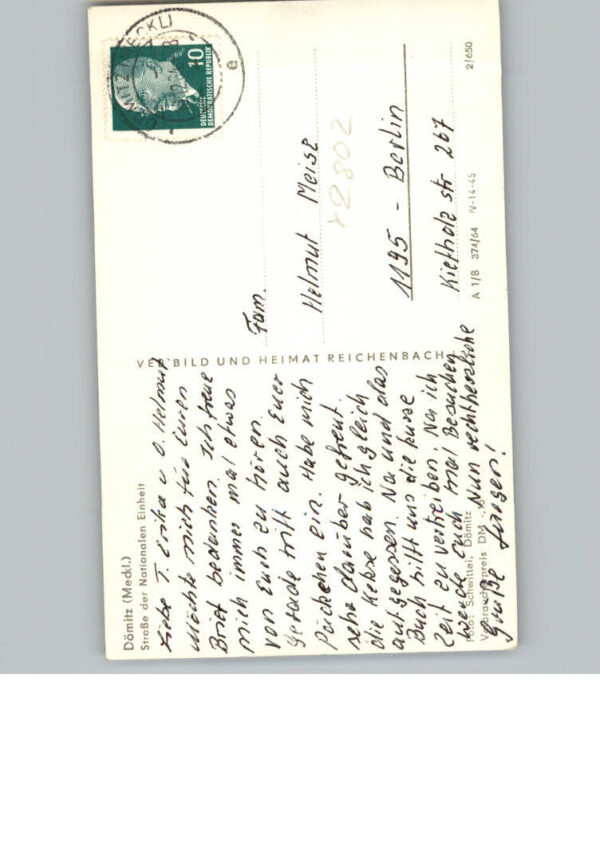 Dömitz (Meckl.)
Straße der Nationalen Einheit
Liebe T. Erika u. O. Helmut
Möchte mich für Euren
Brief bedanken. Ich freue
mich immer mal etwas
von Euch zu hören.
Gerade trifft auch Euer
Päckchen ein. Habe mich
sehr darüber gefreut.
die Kekse hab ich gleich
aufgegessen. Na und das
Buch hilft uns die kurze
Zeit zu vertreiben. Na ich
werde Euch mal Besuchen
Nun recht herzliche
Grüße Jürgen!
Foto: Schwittei, Dömitz
Verbraucherpreis DM
VEB BILD UND HEIMAT REICHENBACH
DÖMITZ (MECKL)
e
10
DEUTSCHE
DEMOKRATISCHE REPUBLIK
Fam.
Helmut Meise
12802
1195 - Berlin
Kiefholz str 267
A 1/B 374/64 IV-14-45
2/650